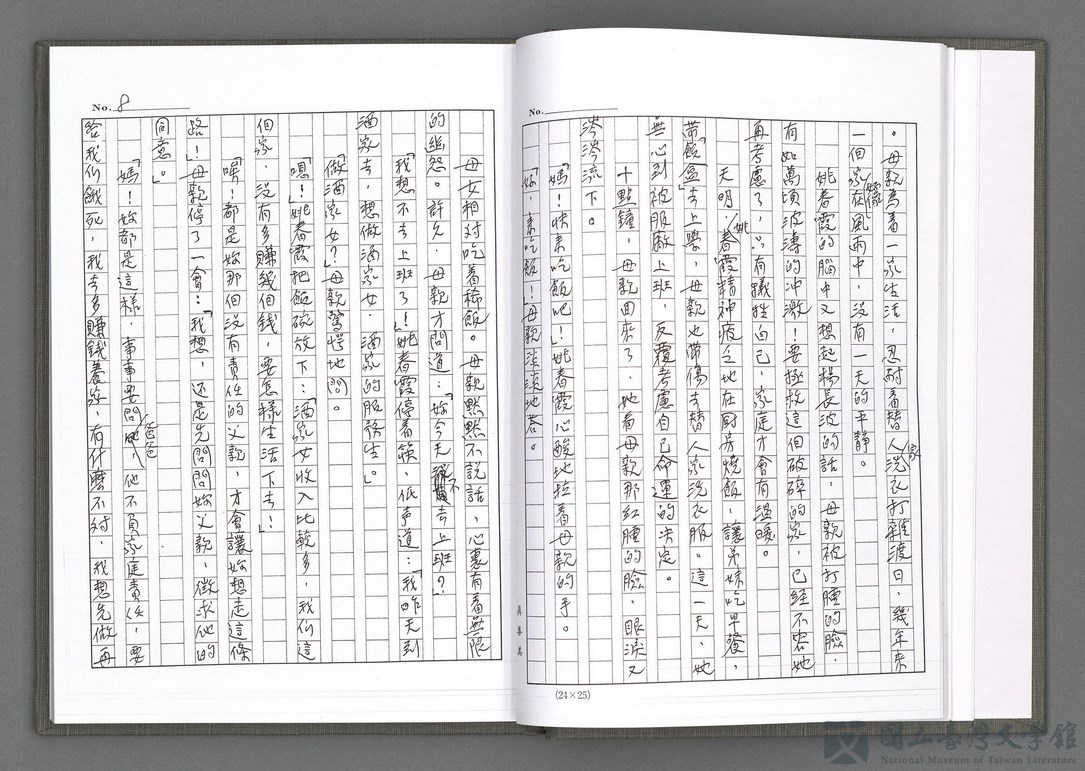 No.
。母親為着一家生活，忍耐着替人家洗衣打雜渡日，幾年來
一個家好像在風雨中，沒有一天的平靜。
姚春霞的腦中又想起楊長波的話，母親被打腫的臉，
有如萬頃波濤的冲激！要拯救這個破碎的家，已經不容她
再考慮了，只有犧牲自己，家庭才會有溫暖。
天明，姚春霞精神疲乏地在廚房燒飯，讓弟妹吃早餐，
帶「飯盒」去上學，母親也帶傷去替人家洗衣服。這一天，她
無心到被服廠上班，反覆考慮自己命運的決定。
十點鐘，母親回來了，她看母親那紅腫的臉，眼淚又
涔涔流下。
「媽！快來吃飯吧！」姚春霞心酸地拉着母親的手。
「好，來吃飯！」母親淡淡地答。
真善美
(24×25)
No. 8
母女相对吃着稀飯。母親默默不說話，心裏有着無限
的幽怨。許久，母親才問道：「妳今天不去上班？」
「我想不去上班了！」姚春霞停着筷，低声道：「我昨天到
酒家去，想做酒家女，酒家的服務生。」
「做酒家女？」母親驚愕地問。
「嗯！」姚春霞把飯碗放下：「酒家女收入比較多，我們這
個家，沒有多賺幾個錢，要怎樣生活下去！」
「唉！都是妳那個沒有責任的父親，才會讓妳想走這條
路！」母親停了一會：「我想，還是先問問妳父親，徵求他的
同意。」
「媽！妳都是這樣，事事要問爸爸，他不負家庭責任，要
給我們餓死，我去多賺錢養家，有什麼不対，我想先做再
國立臺灣文學館
National Museum of Taiwan Literature